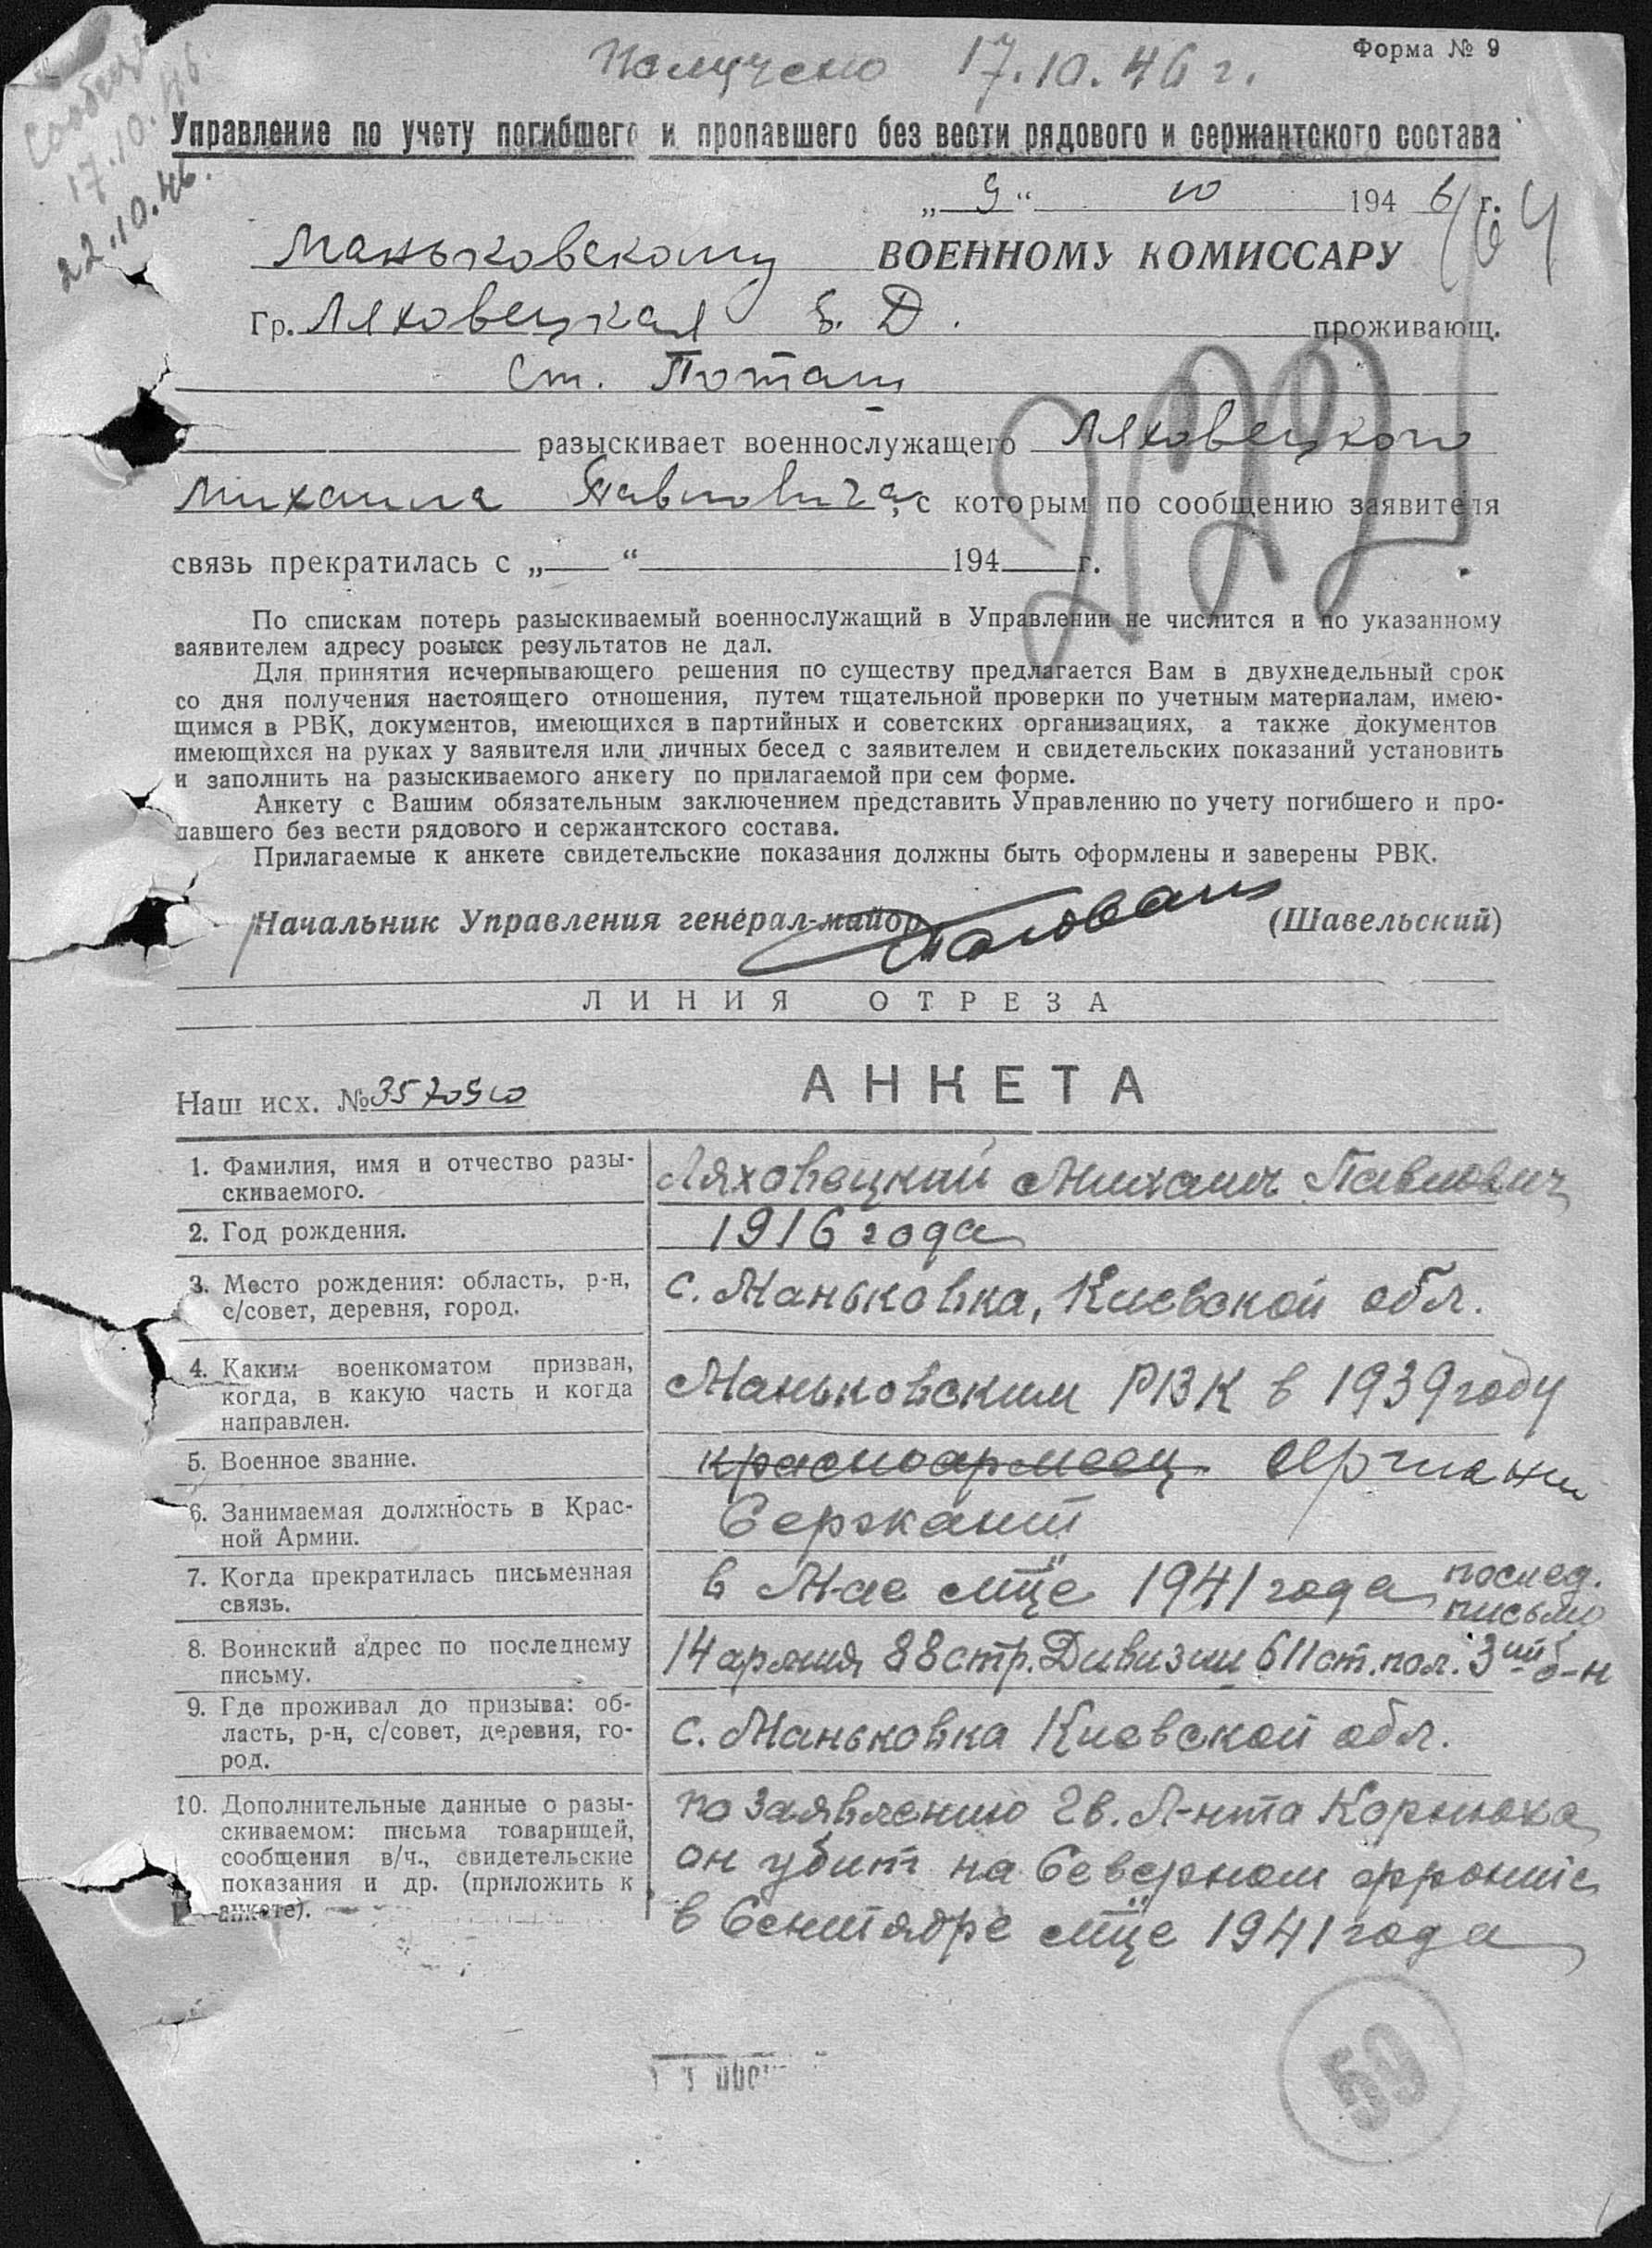 Получено 17.10.46 г.
Форма № 9
Сообщ
17.10.46.
22.10.46.
Управление по учету погибшего и пропавшего без вести рядового и сержантского состава
„ 9 “ 10 194 6 г.
Маньковскому ВОЕННОМУ КОМИССАРУ
Гр. Ляховецкая Е. Д. проживающ.
ст. Поташ
разыскивает военнослужащего Ляховецкого
Михаила Павловича, с которым по сообщению заявителя
связь прекратилась с „ “ 194 г.
222
По спискам потерь разыскиваемый военнослужащий в Управлении не числится и по указанному
заявителем адресу розыск результатов не дал.
Для принятия исчерпывающего решения по существу предлагается Вам в двухнедельный срок
со дня получения настоящего отношения, путем тщательной проверки по учетным материалам, имею-
щимся в РВК, документов, имеющихся в партийных и советских организациях, а также документов
имеющихся на руках у заявителя или личных бесед с заявителем и свидетельских показаний установить
и заполнить на разыскиваемого анкету по прилагаемой при сем форме.
Анкету с Вашим обязательным заключением представить Управлению по учету погибшего и про-
павшего без вести рядового и сержантского состава.
Прилагаемые к анкете свидетельские показания должны быть оформлены и заверены РВК.
Начальник Управления генерал-майор (Шавельский)
ЛИНИЯ ОТРЕЗА
АНКЕТА
Наш исх. №
1. Фамилия, имя и отчество разы-
скиваемого.
Ляховецкий Михаил Павлович
2. Год рождения.
1916 года
3. Место рождения: область, р-н,
с/совет, деревня, город.
с. Маньковка, Киевской обл.
4. Каким военкоматом призван,
когда, в какую часть и когда
направлен.
Маньковским РВК в 1939 году
5. Военное звание.
красноармеец
6. Занимаемая должность в Крас-
ной Армии.
Сержант
7. Когда прекратилась письменная
связь.
в Мае м-це 1941 года послед.
письмо
8. Воинский адрес по последнему
письму.
14 армия 88 стр. Дивизии 611 ст. пол. 3ий б-н
9. Где проживал до призыва: об-
ласть, р-н, с/совет, деревня, го-
род.
с. Маньковка Киевской обл.
10. Дополнительные данные о разы-
скиваемом: письма товарищей,
сообщения в/ч., свидетельские
показания и др. (приложить к
анкете).
по заявлению гв. Л-нта Корнюха
он убит на Северном фронте
в Сентябре м-це 1941 года
59